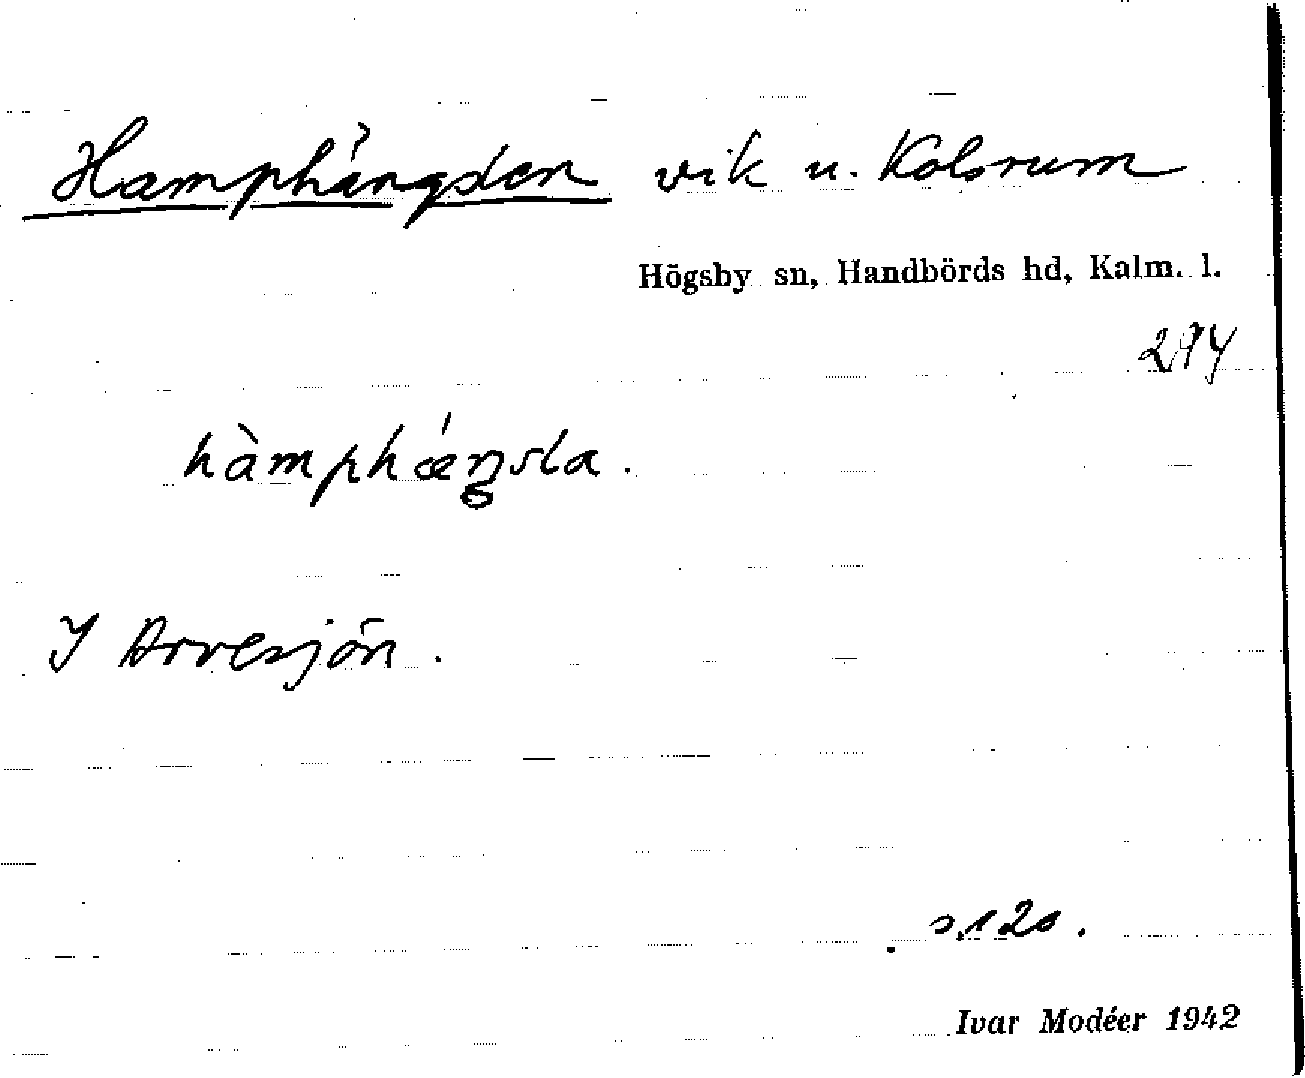 Hamphängden vik u. Kolsrum
Högsby sn, Handbörds hd, Kalm. l.
294
hàmphǽŋsla.
I Arvesjön.
s. 120.
Ivar Modéer 1942